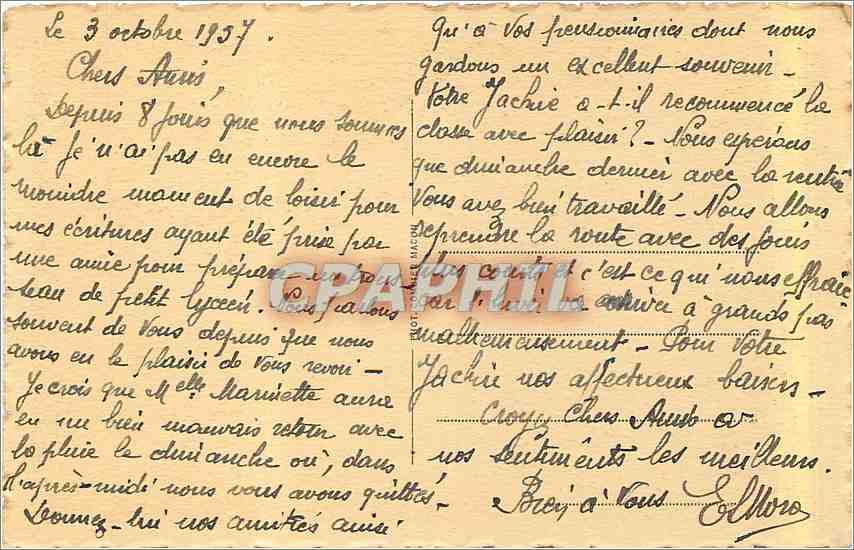 Le 3 octobre 1957.
Chers Amis,
Depuis 8 jours que nous sommes
là je n'ai pas eu encore le
moindre moment de loisir pour
mes écritures ayant été prise par
une amie pour préparer un trous
seau de petit lycéen. Nous parlons
souvent de Vous depuis que nous
avons eu le plaisir de Vous revoir -
Je crois que Melle Marinette aura
eu un bien mauvais retour avec
la pluie le dimanche où, dans
l'après-midi nous vous avons quittés.
Donnez-lui nos amitiés ainsi
qu'à vos pensionnaires dont nous
gardons un excellent souvenir -
Votre Jackie a-t-il recommencé la
classe avec plaisir? - Nous espérons
que dimanche dernier avec la rentrée
Vous avez bien travaillé - Nous allons
reprendre la route avec des jours
plus courts et c'est ce qui nous effraie
car l'hiver va arriver à grands pas
malheureusement - Pour Votre
Jackie nos affectueux baisers -
Croyez Chers Amis à
nos sentiments les meilleurs.
Bien à Vous
PHOT. COMBIER MACON
CPAPHIL